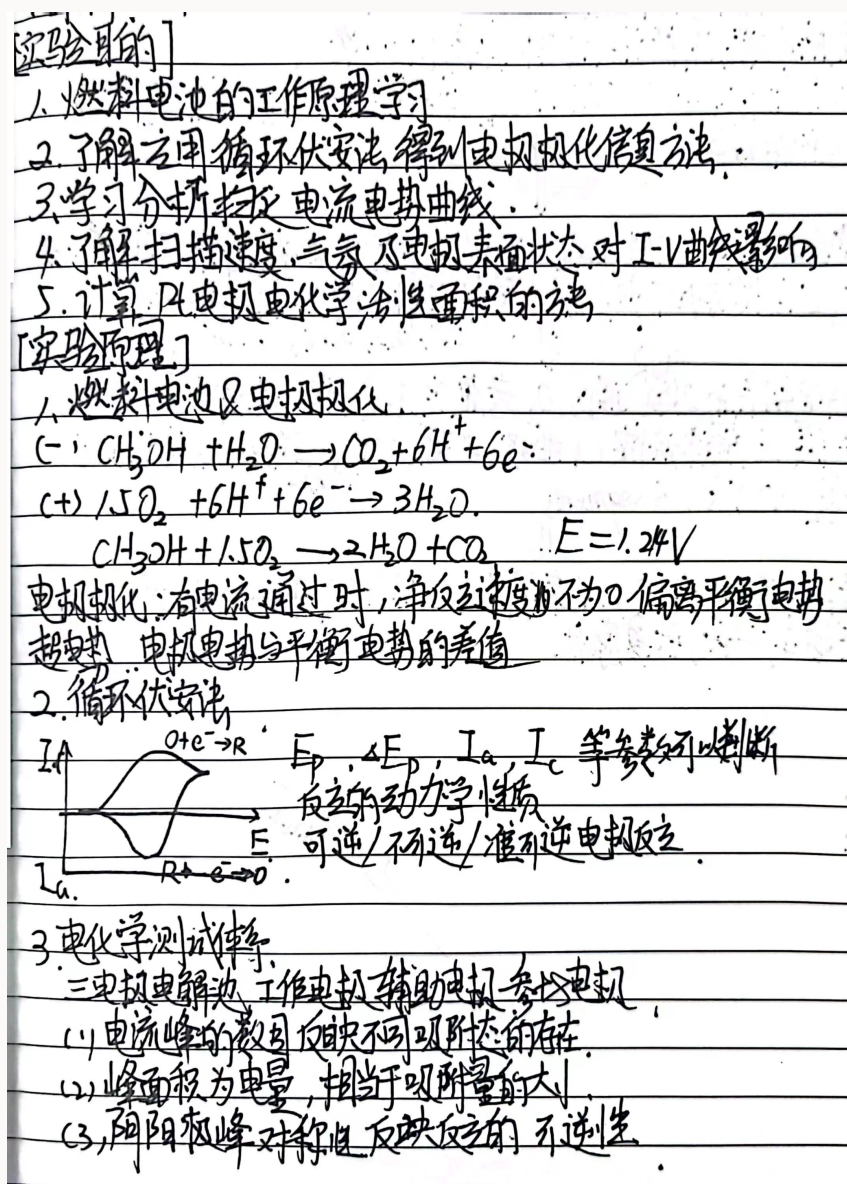 [实验目的]
1. 燃料电池的工作原理学习
2. 了解应用循环伏安法得到电极极化信息方法.
3. 学习分析构反电流电势曲线.
4. 了解扫描速度、气氛及电极表面状态对I-V曲线影响
5. 计算Pt电极电化学活性面积的方法
[实验原理]
1. 燃料电池&电极极化.
(-) CH3OH + H2O → CO2 + 6H+ + 6e-
(+) 1.5O2 + 6H+ + 6e- → 3H2O.
CH3OH + 1.5O2 → 2H2O + CO2 E = 1.24V
电极极化:有电流通过时,净反应速度不为0 偏离平衡电势
超电势 电极电势与平衡电势的差值
2. 循环伏安法
O+e-→R
E
R - e-→O
Ep, ΔEp, Ia, Ic 等参数可以判断
反应的动力学性质
可逆/不可逆/准可逆电极反应.
3. 电化学测试体系.
三电极电解池、工作电极 辅助电极 参比电极
(1) 电流峰的数目反映不同吸附态的存在.
(2) 峰面积为电量,相当于吸附量的大小.
(3) 阴阳极峰对称性 反映反应的可逆性